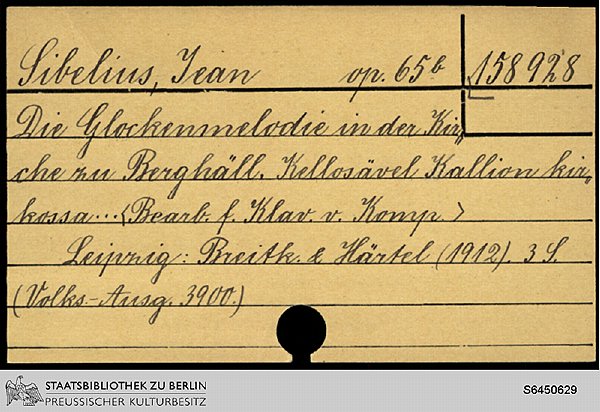 Sibelius, Jean op. 65b 158928
Die Glockenmelodie in der Kir„
che zu Berghäll. Kellosävel Kallion kir„
kossa...<Bearb. f. Klav. v. Komp.>
Leipzig: Breitk. & Härtel (1912). 3 S.
(Volks.-Ausg. 3900.)
STAATSBIBLIOTHEK ZU BERLIN
PREUSSISCHER KULTURBESITZ
S6450629